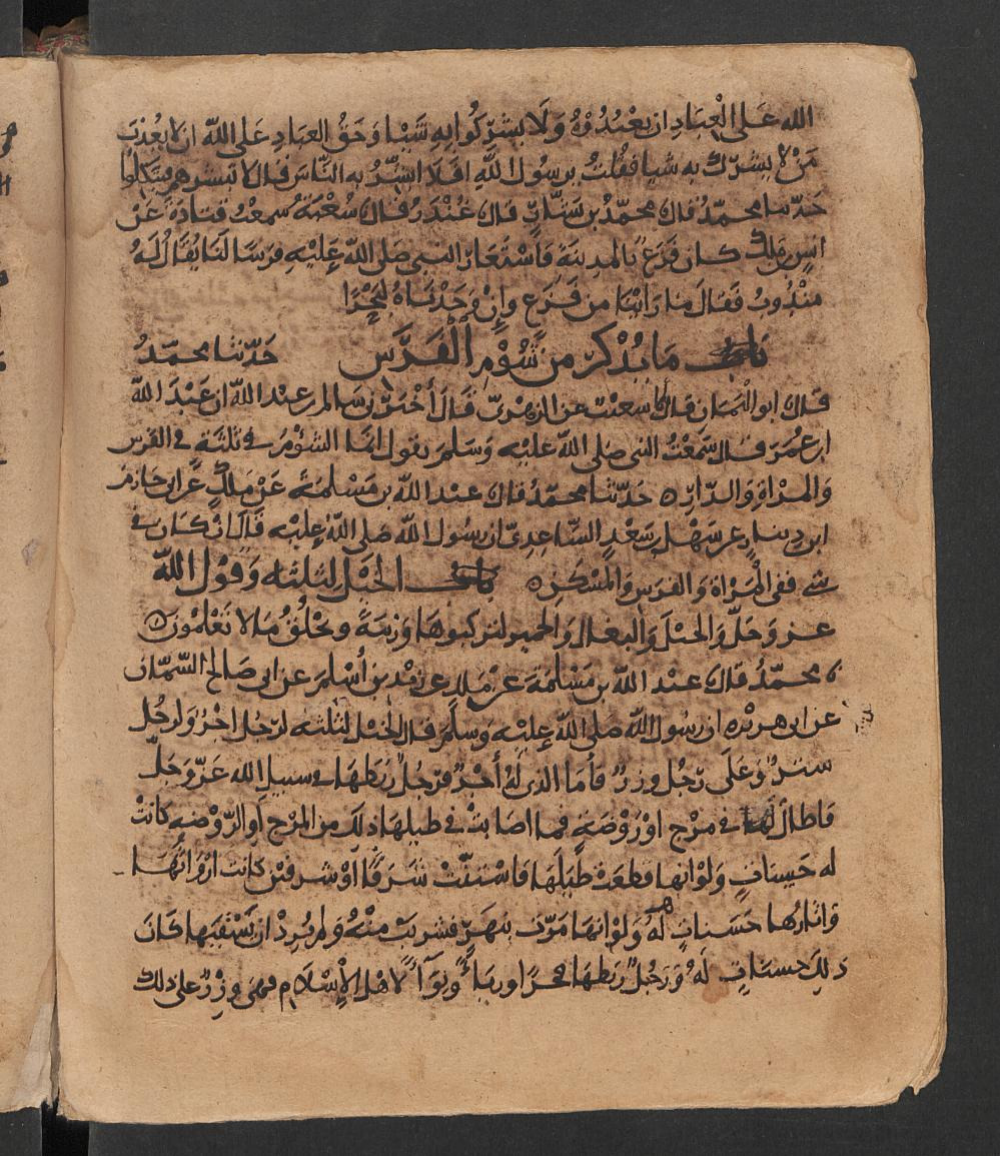 الله عَلى الْعِبَادِ ان يَعْبُدُوهُ وَلَا يشْرِكُوا بِهِ شَيْا وَحَقُ العِبَادِ عَلى اللهِ ان لا يُعذِبَ
مَنْ لا يشرك به شيا فقُلتُ يرسُول اللهِ افَلَا ابشِّرُ به النَّاسَ قال لا تبشرهم فيتكلوا
حَدّثنا محمّدٌ قال محمّدُ بن بشّارٍ قال غُنْدَرٌ قال شُعْبَةُ سَمِعْتُ قتادَةَ عَنْ
انسِ بن مَلكٍ كان فَزَعٌ بالمدِينَةِ فَاسْتَعَارَ النبي صَلى اللهُ عَليْهِ فَرَسًا لَنَا يُقَالُ لَهُ
مَنْدُوبٌ فَقالَ مَا رَايْنَا من فَزَعٍ وإِنْ وَجَدْنَاهُ لَبَحْرًا
بَابُ مَا يُذْكرُ من شُوْمِ الْفَرَسِ حَدّثنا محمّدٌ
قال ابو اليَمَانِ قال نا شعيْبٌ عن الزهْرِيّ قَالَ أخبَرَني سَالمُ بن عبْد الله ان عَبْدَ الله
ابن عُمَرَ قال سَمِعْتُ النبي صَلى اللهُ عَليْه وَسَلمَ يقول انما الشُوْمُ في ثلثةٍ في الفرس
والمَرْاةِ وَالدّارِ ه حَدّثنا محمّدٌ قال عبْدُ الله بن مَسْلمَةَ عَنْ مَلكٍ عَن ابي حَازم
ابن دِينارٍ عن سَهْل بن سَعْدٍ السّاعِدِيّ ان رسُول الله صَلى اللهُ عَليْه قَالَ ان كَان في
شي ففي المَرْاة وَالفرَسِ وَالمَسْكَن ه بَابُ الخَيْل لثلثه وَقوْل الله
عز وَجَلّ وَالخَيْلَ وَالبغالَ وَالحميرَ لتركَبُوهَا وَزينَةً ويخلُقُ مَا لا تعْلمُونَ
نا محمّدٌ قال عبْد الله بن مَسْلمَةَ عَنْ مَلكٍ عن زَيْد بن أسْلمَ عن ابي صَالح السّمّان
عن ابي هريْرة ان رَسُول الله صَلى الله عليْه وَسلّمَ قال الخيْل لثلثه لرَجُل اجْرٌ وَلرجُل
ستْرٌ وَعَلى رَجُل وزرٌ فأمَا الذي لَهُ أجْرٌ فرَجُلٌ ربَطهَا في سبيل الله عَزّ وَجَلّ
فَاطالَ لَهَا في مرْج اوْ رَوْضَةٍ فما اصَابتْ في طيلهَا ذلِكَ من المَرْج أو الرّوْضه كانتْ
له حَسناتٍ وَلوْ انها قطعَتْ طيَلَهَا فاسْتنّتْ شَرَفًا اوْ شرفيْن كانت ارْوَاثُهَا
وَاثارُها حَسَناتٍ لَهُ وَلوْ انهَا مَرّت بنهَرٍ فشربَتْ منْهُ وَلم يُردْ ان يَسْقيَها كانَ
ذلكَ حسنَاتٍ لَهُ وَرَجُلٌ ربَطهَا فخرًا ورياءً ونِوَآءً لاهْل الإسْلام فهي وزْرٌ على ذلك